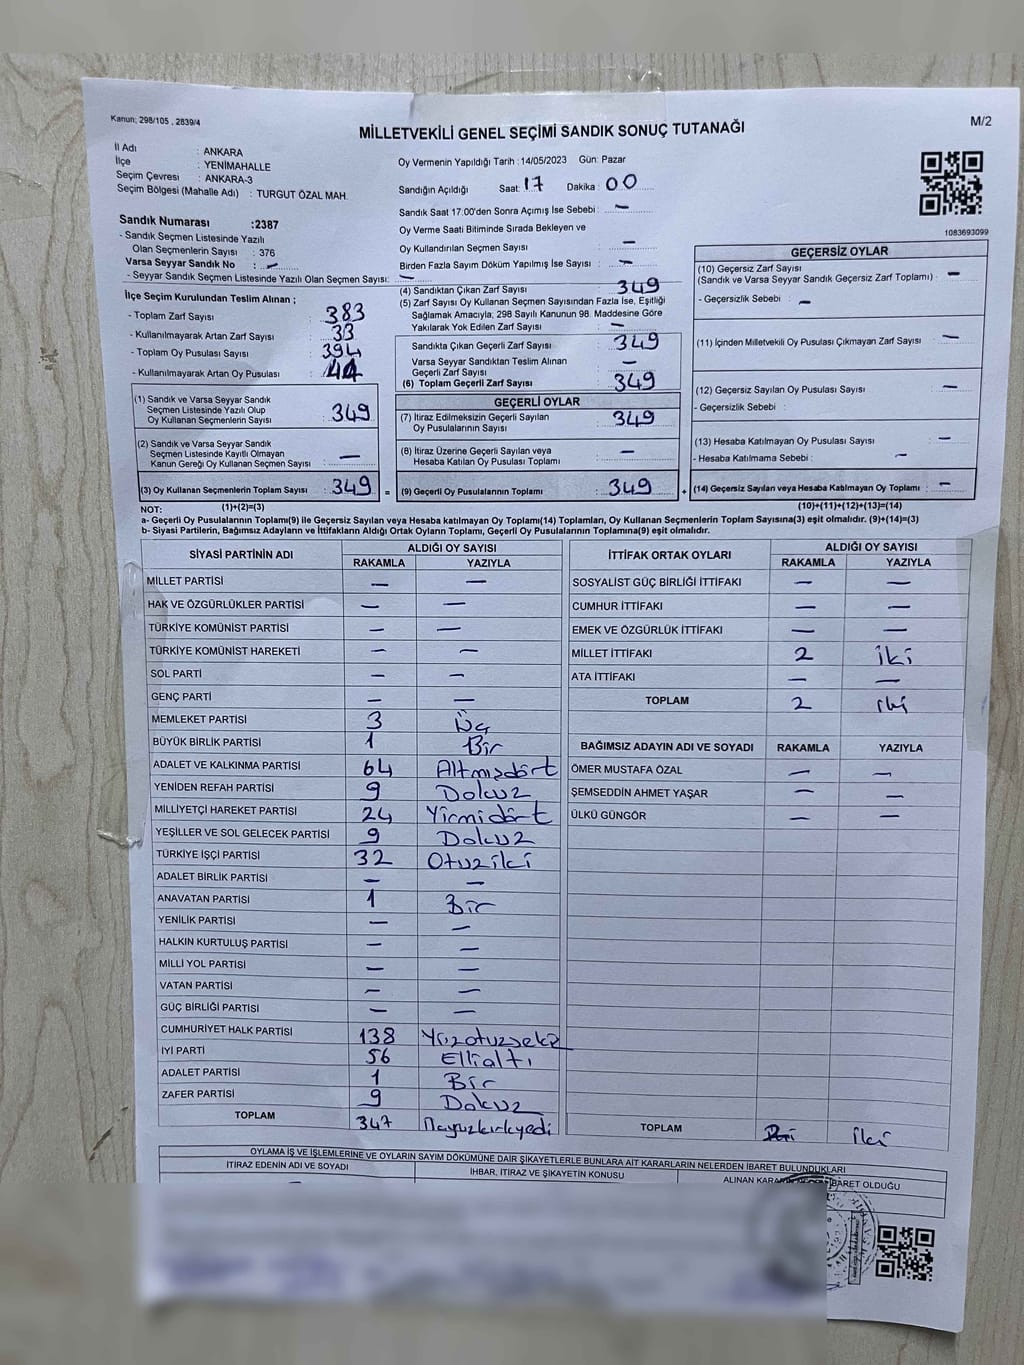 Kanun; 298/105 , 2839/4
MİLLETVEKİLİ GENEL SEÇİMİ SANDIK SONUÇ TUTANAĞI
M/2
İl Adı : ANKARA
İlçe : YENİMAHALLE
Seçim Çevresi : ANKARA-3
Seçim Bölgesi (Mahalle Adı) : TURGUT ÖZAL MAH.
Sandık Numarası :2387
- Sandık Seçmen Listesinde Yazılı
Olan Seçmenlerin Sayısı : 376
Varsa Seyyar Sandık No : —
- Seyyar Sandık Seçmen Listesinde Yazılı Olan Seçmen Sayısı: —
İlçe Seçim Kurulundan Teslim Alınan ;
- Toplam Zarf Sayısı : 383
- Kullanılmayarak Artan Zarf Sayısı : 33
- Toplam Oy Pusulası Sayısı : 394
- Kullanılmayarak Artan Oy Pusulası :
(1) Sandık ve Varsa Seyyar Sandık
Seçmen Listesinde Yazılı Olup
Oy Kullanan Seçmenlerin Sayısı : 349
(2) Sandık ve Varsa Seyyar Sandık
Seçmen Listesinde Kayıtlı Olmayan
Kanun Gereği Oy Kullanan Seçmen Sayısı : —
(3) Oy Kullanan Seçmenlerin Toplam Sayısı : 349 =
Oy Vermenin Yapıldığı Tarih :14/05/2023 Gün: Pazar
Sandığın Açıldığı Saat: 17 Dakika: 00
Sandık Saat 17:00'den Sonra Açımış İse Sebebi : —
Oy Verme Saati Bitiminde Sırada Bekleyen ve
Oy Kullandırılan Seçmen Sayısı : —
Birden Fazla Sayım Döküm Yapılmış İse Sayısı : —
(4) Sandıktan Çıkan Zarf Sayısı : 349
(5) Zarf Sayısı Oy Kullanan Seçmen Sayısından Fazla İse, Eşitliği
Sağlamak Amacıyla; 298 Sayılı Kanunun 98. Maddesine Göre
Yakılarak Yok Edilen Zarf Sayısı : —
Sandıkta Çıkan Geçerli Zarf Sayısı : 349
Varsa Seyyar Sandıktan Teslim Alınan
Geçerli Zarf Sayısı : —
(6) Toplam Geçerli Zarf Sayısı : 349
GEÇERLİ OYLAR
(7) İtiraz Edilmeksizin Geçerli Sayılan
Oy Pusulalarının Sayısı : 349
(8) İtiraz Üzerine Geçerli Sayılan veya
Hesaba Katılan Oy Pusulası Toplamı : —
(9) Geçerli Oy Pusulalarının Toplamı : 349 +
1083693099
GEÇERSİZ OYLAR
(10) Geçersiz Zarf Sayısı
(Sandık ve Varsa Seyyar Sandık Geçersiz Zarf Toplamı) : —
- Geçersizlik Sebebi : —
(11) İçinden Milletvekili Oy Pusulası Çıkmayan Zarf Sayısı : —
(12) Geçersiz Sayılan Oy Pusulası Sayısı : —
- Geçersizlik Sebebi :
(13) Hesaba Katılmayan Oy Pusulası Sayısı : —
- Hesaba Katılmama Sebebi : —
(14) Geçersiz Sayılan veya Hesaba Katılmayan Oy Toplamı : —
NOT: (1)+(2)=(3) (10)+(11)+(12)+(13)=(14)
a- Geçerli Oy Pusulalarının Toplamı(9) ile Geçersiz Sayılan veya Hesaba katılmayan Oy Toplamı(14) Toplamları, Oy Kullanan Seçmenlerin Toplam Sayısına(3) eşit olmalıdır. (9)+(14)=(3)
b- Siyasi Partilerin, Bağımsız Adayların ve İttifakların Aldığı Ortak Oyların Toplamı, Geçerli Oy Pusulalarının Toplamına(9) eşit olmalıdır.
SİYASİ PARTİNİN ADI ALDIĞI OY SAYISI
RAKAMLA YAZIYLA
MİLLET PARTİSİ — —
HAK VE ÖZGÜRLÜKLER PARTİSİ — —
TÜRKİYE KOMÜNİST PARTİSİ — —
TÜRKİYE KOMÜNİST HAREKETİ — —
SOL PARTİ — —
GENÇ PARTİ — —
MEMLEKET PARTİSİ 3 Üç
BÜYÜK BİRLİK PARTİSİ 1 Bir
ADALET VE KALKINMA PARTİSİ 64 Altmışdört
YENİDEN REFAH PARTİSİ 9 Dokuz
MİLLİYETÇİ HAREKET PARTİSİ 24 Yirmidört
YEŞİLLER VE SOL GELECEK PARTİSİ 9 Dokuz
TÜRKİYE İŞÇİ PARTİSİ 32 Otuziki
ADALET BİRLİK PARTİSİ — —
ANAVATAN PARTİSİ 1 Bir
YENİLİK PARTİSİ — —
HALKIN KURTULUŞ PARTİSİ — —
MİLLİ YOL PARTİSİ — —
VATAN PARTİSİ — —
GÜÇ BİRLİĞİ PARTİSİ — —
CUMHURİYET HALK PARTİSİ 138 Yüzotuzsekiz
İYİ PARTİ 56 Ellialtı
ADALET PARTİSİ 1 Bir
ZAFER PARTİSİ 9 Dokuz
TOPLAM 347
İTTİFAK ORTAK OYLARI ALDIĞI OY SAYISI
RAKAMLA YAZIYLA
SOSYALİST GÜÇ BİRLİĞİ İTTİFAKI — —
CUMHUR İTTİFAKI — —
EMEK VE ÖZGÜRLÜK İTTİFAKI — —
MİLLET İTTİFAKI 2 iki
ATA İTTİFAKI — —
TOPLAM 2 iki
BAĞIMSIZ ADAYIN ADI VE SOYADI RAKAMLA YAZIYLA
ÖMER MUSTAFA ÖZAL — —
ŞEMSEDDİN AHMET YAŞAR — —
ÜLKÜ GÜNGÖR — —
TOPLAM iki
OYLAMA İŞ VE İŞLEMLERİNE VE OYLARIN SAYIM DÖKÜMÜNE DAİR ŞİKAYETLERLE BUNLARA AİT KARARLARIN NELERDEN İBARET BULUNDUKLARI
İTİRAZ EDENİN ADI VE SOYADI İHBAR, İTİRAZ VE ŞİKAYETİN KONUSU ALINAN İBARET OLDUĞU